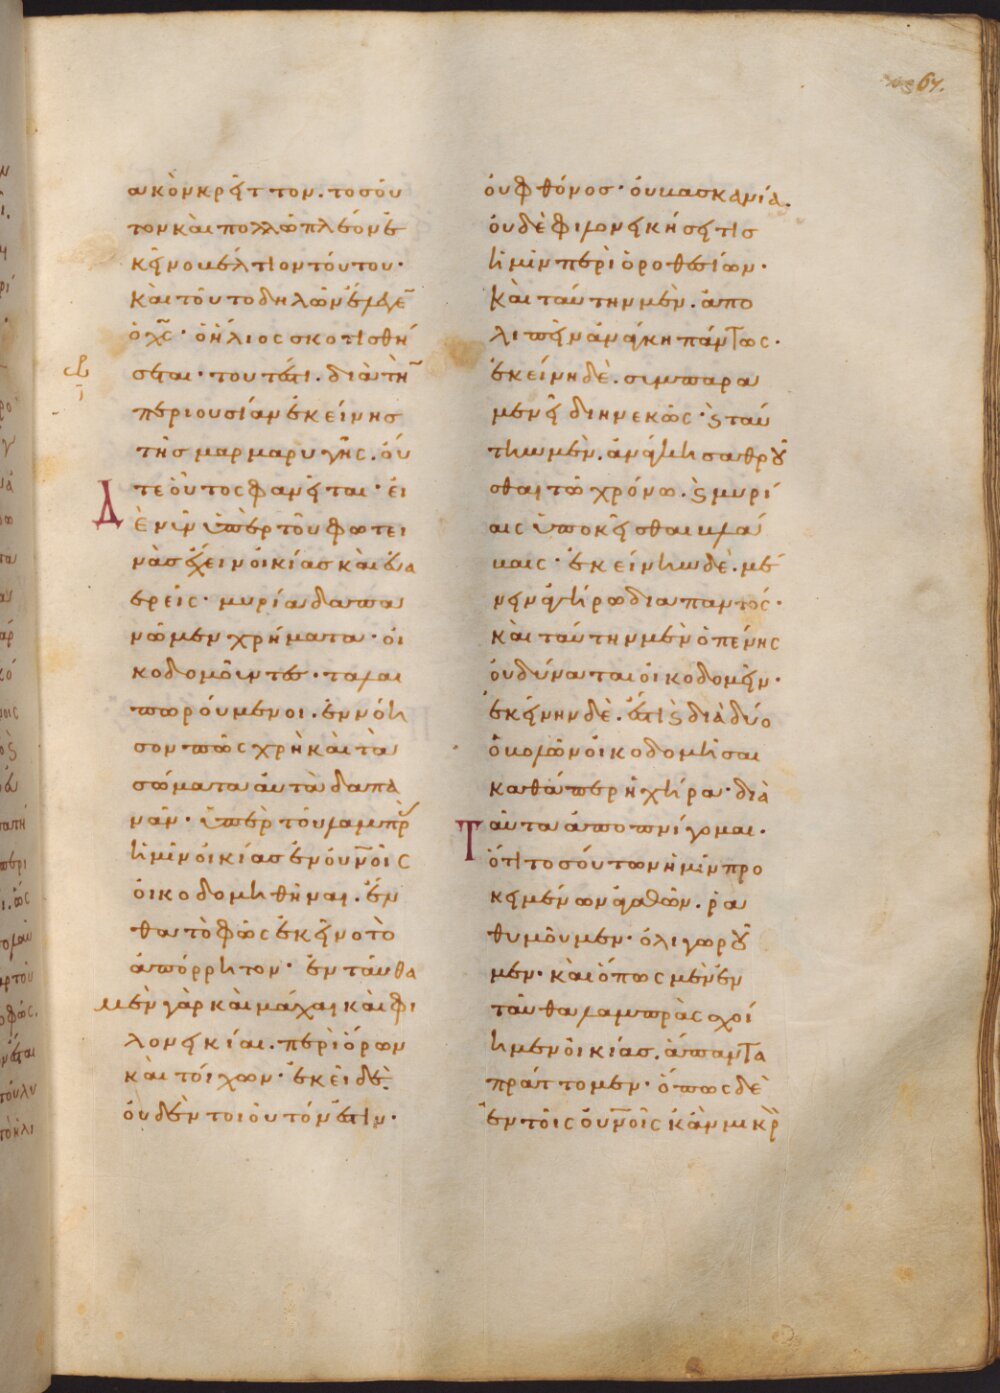 67.
ακὸν κρεῖττον. τοσοῦ
τον καὶ πολλῶ πλέον ἐ
κεῖνο βέλτιον τούτου·
καὶ τοῦτο δηλῶν ἔλεγε
ὁ χς· ὁ ἥλιος σκοτισθή
σεται· τουτέστι. διὰ τὴ
περιουσίαν ἐκείνησ
τῆσ μαρμαρυγῆς. οὐ
τε οὗτος φανεῖται· εἰ
Δὲ νῦν ὑπὲρ τοῦ φωτει
νὰσ ἔχειν οἰκίασ καὶ ἐα
ερεῖς· μυρία δαπα
νῶμεν χρήματα· οἰ
κοδομοῦντες· ταλαι
πωρούμενοι. ἐννόη
σον πῶς χρὴ καὶ τὰ
σώματα αὐτὰ δαπα
νᾶν· ὑπὲρ τοῦ λαμπρ
ἡμῖν οἰκίασ ἐν οὐνοῖς
οἰκοδομηθῆναι. ἔν
θα τὸ φῶς ἐκεῖνο τὸ
ἀπόρρητον· ἐνταῦθα
μὲν γὰρ καὶ μάχαι καὶ φι
λονεικίαι. περὶ ὅρων
καὶ τοίχων· ἐκεῖ δὲ.
οὐδὲν τοιοῦτόν ἐστιν·
οὐ φθόνοσ· οὐ βασκανία.
οὐδὲ φιλονεικήσει τισ
ἡμῖν περὶ ὁροθεσίων·
καὶ ταύτην μὲν. ἀπο
λιπεῖν ἀνάγκη πάντως·
ἐκείνη δὲ. συμπαρα
μενεῖ διηνεκῶς· ϗ ταύ
την μὲν. ἀνάγκη σαθροῦ
σθαι τῶ χρόνω. ϗ μυρί
αις ὑποκεῖσθαι βλά
βαις· ἐκείνην δὲ. μέ
νειν ἀγήρω διαπαντός·
καὶ ταύτην μὲν ὁ πένης
οὐ δύναται οἰκοδομεῖν·
ἐκείνην δὲ. ἔστι ϗ διὰ δύο
ὀβολῶν οἰκοδομῆσαι
καθάπερ ἡ χήρα· διὰ
Ταῦτα ἀποπνίγομαι·
ὅτι τοσούτων ἡμῖν προ
κειμένων ἀγαθῶν. ρα
θυμοῦμεν· ὀλιγωροῦ
μεν· καὶ ὅπως μὲν ἐν
ταῦθα λαμπρὰς σχοί
ημεν οἰκίασ. ἅπαντα
πράττομεν· ὅπως δὲ
ἐν τοῖς οὐνοῖς κἂν μικρ